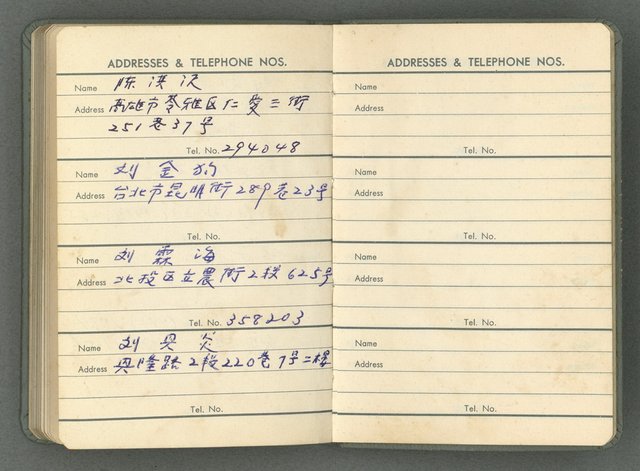 ADDRESSES & TELEPHONE NOS.
Name 陈洪
Address 高雄市苓雅区仁爱三街
251巷37号
Tel. No. 294048
Name 刘金
Address 台北市昆明街289巷23号
Tel. No.
Name 刘霖海
Address 北投区立農街2段625号
Tel. No. 358203
Name 刘
Address 隆路2段220巷7号二楼
Tel. No.
ADDRESSES & TELEPHONE NOS.
Name
Address
Tel. No.
Name
Address
Tel. No.
Name
Address
Tel. No.
Name
Address
Tel. No.